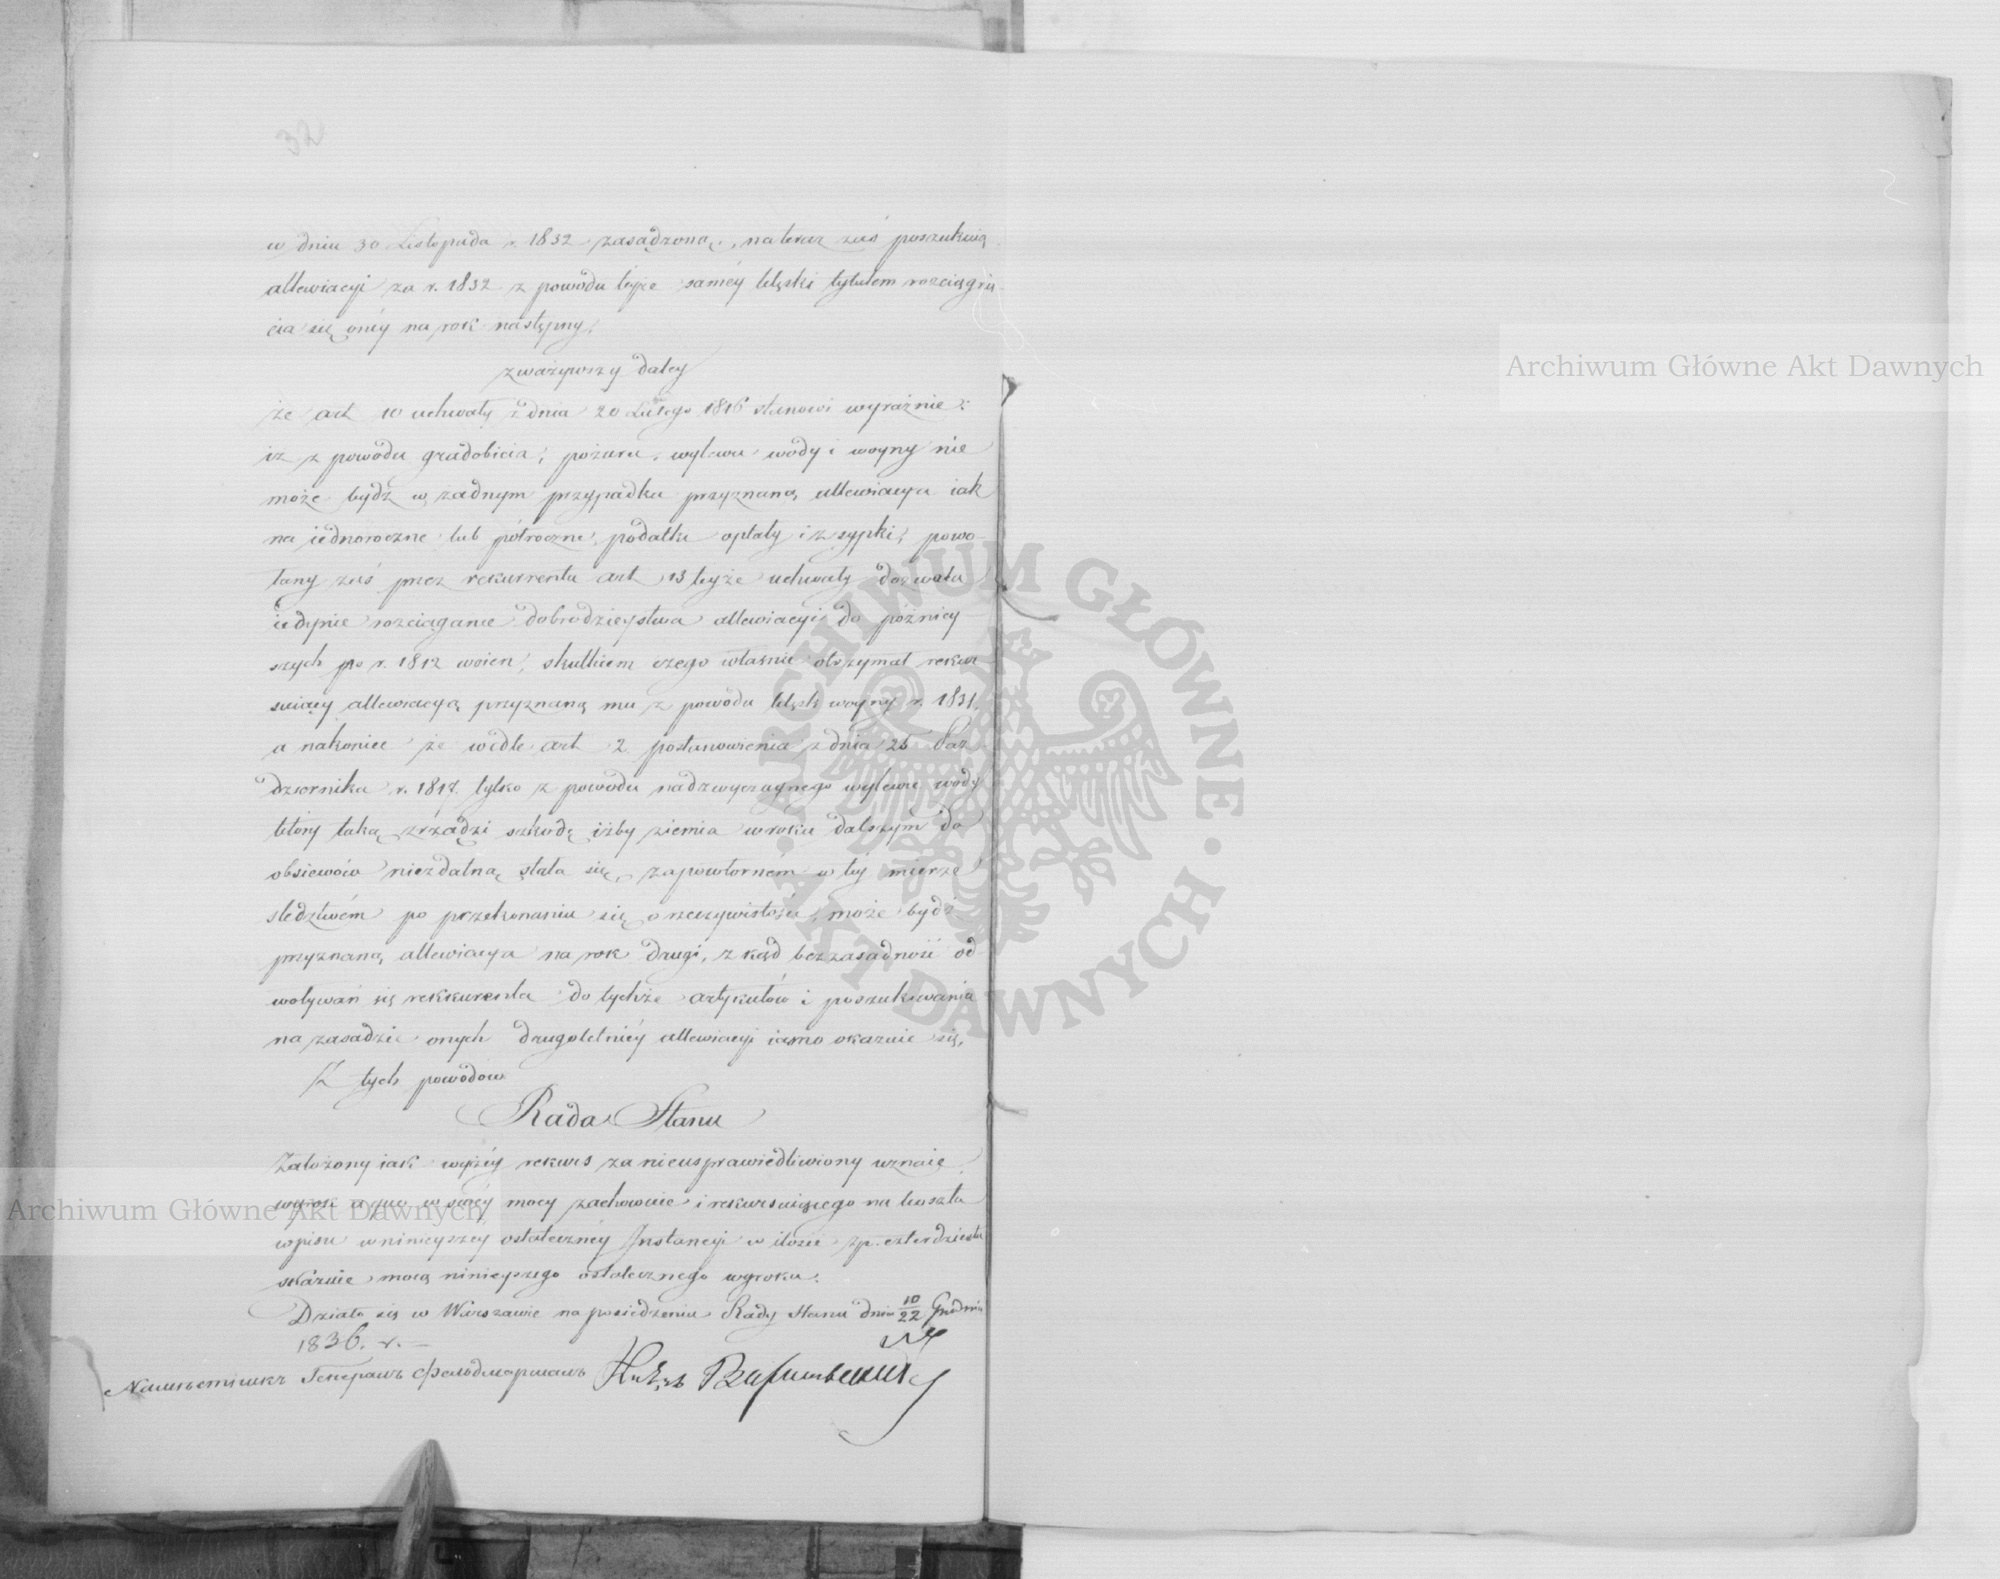 32
w dniu 30 Listopada r. 1832 zasądzoną, na teraz zaś poszukuią
allewiacyi za r. 1832 z powodu teyże saméy klęski tytułem rozciągnię
cia się onéy na rok następny,
zważywszy daley
że art 10 uchwały z dnia 20 Lutego 1816 stanowi wyraźnie:
iż z powodu gradobicia, pożaru, wylewu wody i woyny nie
może bydź w żadnym przypadku przyznaną allewiacya iak
na iednoroczne lub półroczne podatki opłaty i zsypki, powo-
łany zaś przez rekurrenta art 13 teyże uchwały dozwala
iedynie rozciąganie dobrodzieystwa allewiacyi do późniey
szych po r. 1812 woien, skutkiem czego właśnie otrzymał rekur
suiący allewiacyą przyznaną mu z powodu klęsk woyny r. 1831,
a nakoniec że wedle art 2 postanowienia z dnia 25 Paź
dziernika r. 1817 tylko z powodu nadzwyczaynego wylewu wody
który taką zrządzi szkodę iżby ziemia w roku dalszym do
obsiewów niezdatną stała się, zapowtórném w téj mierze
śledztwém po przekonaniu się o rzeczywistości, może bydź
przyznaną allewiacya na rok drugi, z kąd bezzasadność od
woływań się rekkurenta do tychże artykułów i poszukiwania
na zasadzie onych drugoletniéy allewiacyi iasno okazuie się,
Z tych powodów
Rada Stanu
Założony iak wyżéy rekurs za nieusprawiedliwiony uznaie
wyrok a quo w swéy mocy zachowuie i rekursuiącego na koszta
wpisu w ninieyszéy ostatecznéy Instancyi w ilości zp. czterdzieści
skazuie mocą ninieyszego ostatecznego wyroku.
Działo się w Warszawie na posiedzeniu Rady Stanu dnia 10/22 Grudnia
1836. r. —
Намѣстникъ Генералъ Фельдмаршалъ Князь Варшавскій
Archiwum Główne Akt Dawnych
Archiwum Główne Akt Dawnych
ARCHIWUM GŁÓWNE · AKT DAWNYCH ·